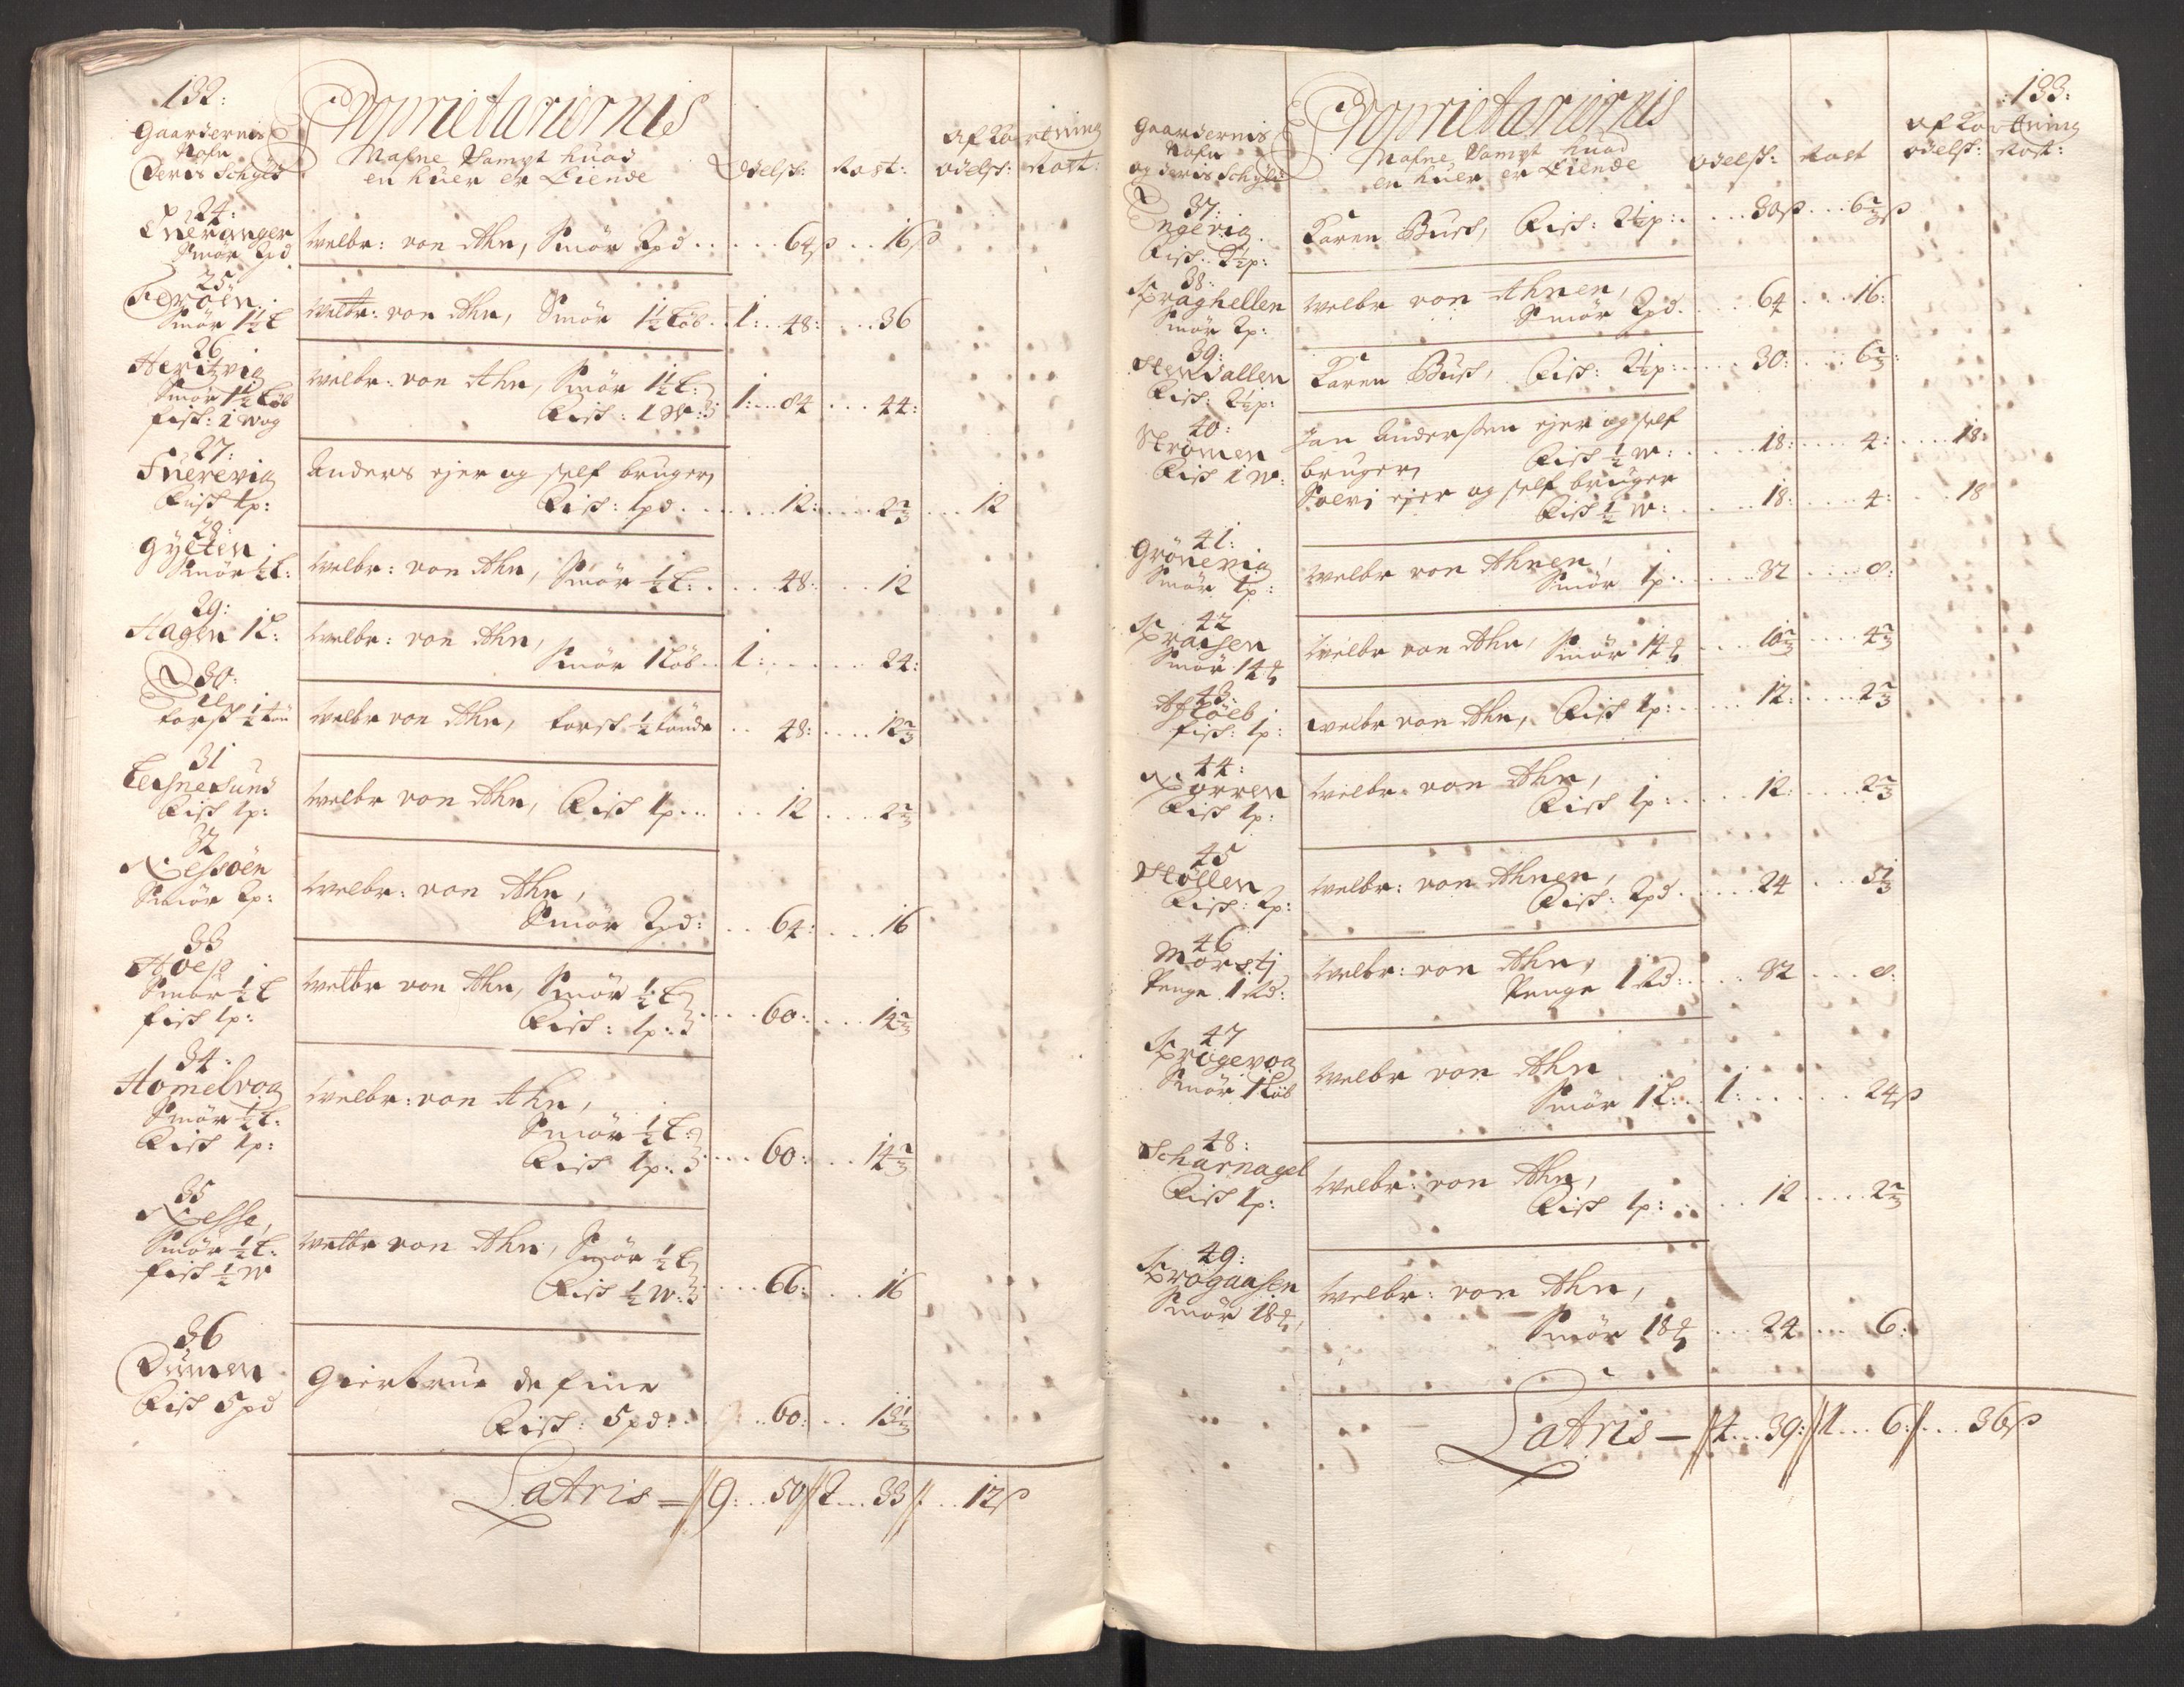 132:
Gaardernis
Nafn
Deris Schyld
Proprietariernis
Nafne Sampt huad
en huer er Eiende
Odelsz: Rost:
Af Kortning
odelsz: Rost:
24:
Eneranger
Smör 2pd
welbr: von Ahn, Smör 2pd .... 64ß .. 16ß
25
Feröen
Smör 1½ L
welbr: von Ahn, Smör 1½ Löb .. 1: .. 48: ... 36
26
Heritzvig
Smör 1½ Löb
fisk: 1 wog
welbr: von Ahn, Smör 1½ L:
Fisk: 1 W: 1: ... 84 ... 44:
27:
Fuerevig
Fisk 1p:
Anders ejer og self bruger,
Fisk: 1pd ..... 12: .... 2⅔ ... 12
28:
Gylten
Smör ½ L:
welbr: von Ahn, Smör ½ L: .... 48: ... 12
29:
Hagen 1L:
welbr: von Ahn,
Smör 1 Löb .. 1: ..... 24:
30:
torsk ½ tön
welbr von Ahn, torsk ½ tönde .. 48: .... 12⅔
31
Lesnesund
Fisk 1p:
welbr von Ahn, Fisk 1p ... 12 ... 2⅔
32
Nessöen
Smör 2p:
welbr: von Ahn,
Smör 2pd: ... 64: .... 16
33
Hope
Smör ½ L
fisk 1p:
welbr von Ahn, Smör ½ L
Fisk: 1p: .... 60: ... 14⅔
34:
Homelvog
Smör ½ L:
Fisk 1p:
welbr: von Ahn,
Smör ½ L:
Fisk 1p: .... 60: ... 14⅔
35
Nesse,
Smör ½ L:
fisk ½ W
welbr von Ahn, Smör ½ L
Fisk ½ W: ... 66: ... 16
36
Dümen
Fisk 5pd
Giertrue de fine
Fisk: 5pd: .. 60: ... 13⅓
Latris — 9: .. 50 2 ... 33 .. 12ß
:133:
Gaardernis
Nafn
og deris Schyld
Proprietariernis
Nafne, Sampt huad
en huer er Eiende
Odelsz: Rost
Af Kortning
odelsz: Rost:
37:
Engevig
Fisk: 2½p:
Karen Busk, Fisk: 2½p: .... 30ß ... 6⅔ß
38:
Kraghellen
Smör 2p:
welbr von Ahnen,
Smör 2pd. ... 64 ... 16:
39:
Stendallen
Fisk: 2½p:
Karen Busk, Fisk: 2½p: .... 30: ... 6⅔:
40:
Strömen
Fisk 1 W:
Jan Andersen ejer og self
bruger, Fisk ½ W: .... 18: .... 4: .... 18:
Salvj ejer og self bruger
Fisk ½ W: .... 18: .... 4: ... 18
41:
Grönevig
Smör 1p:
welbr von Ahnen,
Smör 1p ..... 32 .... 8:
42
Kraisen
Smör 14 ℔
welbr von Ahn, Smör 14 ℔ ... 18⅔ .... 4⅔
43:
fisk: 1p:
welbr von Ahn, Fisk 1p: .... 12: .... 2⅔
44:
Fisk 1p:
welbr: von Ahn,
Fisk 1p: .... 12: .... 2⅔
45
Stöllen
Fisk: 2p:
welbr: von Ahnen,
Fisk: 2pd .... 24 ... 5⅓
46
Mörstj
Penge 1 Rd:
welbr: von Ahn,
Penge 1 Rd: ... 32 ... 8:
47
Krogevog
Smör 1 Löb
welbr von Ahn
Smör 1L: .. 1: ..... 24ß
48:
Scharnagel
Fisk 1p:
welbr: von Ahn,
Fisk 1p: ... 12 .... 2⅔
49:
Krogaasen
Smör 18 ℔,
welbr: von Ahn,
Smör 18 ℔ ... 24 ... 6:
Latris — 7 ... 39: 1 ... 6: ... 36ß